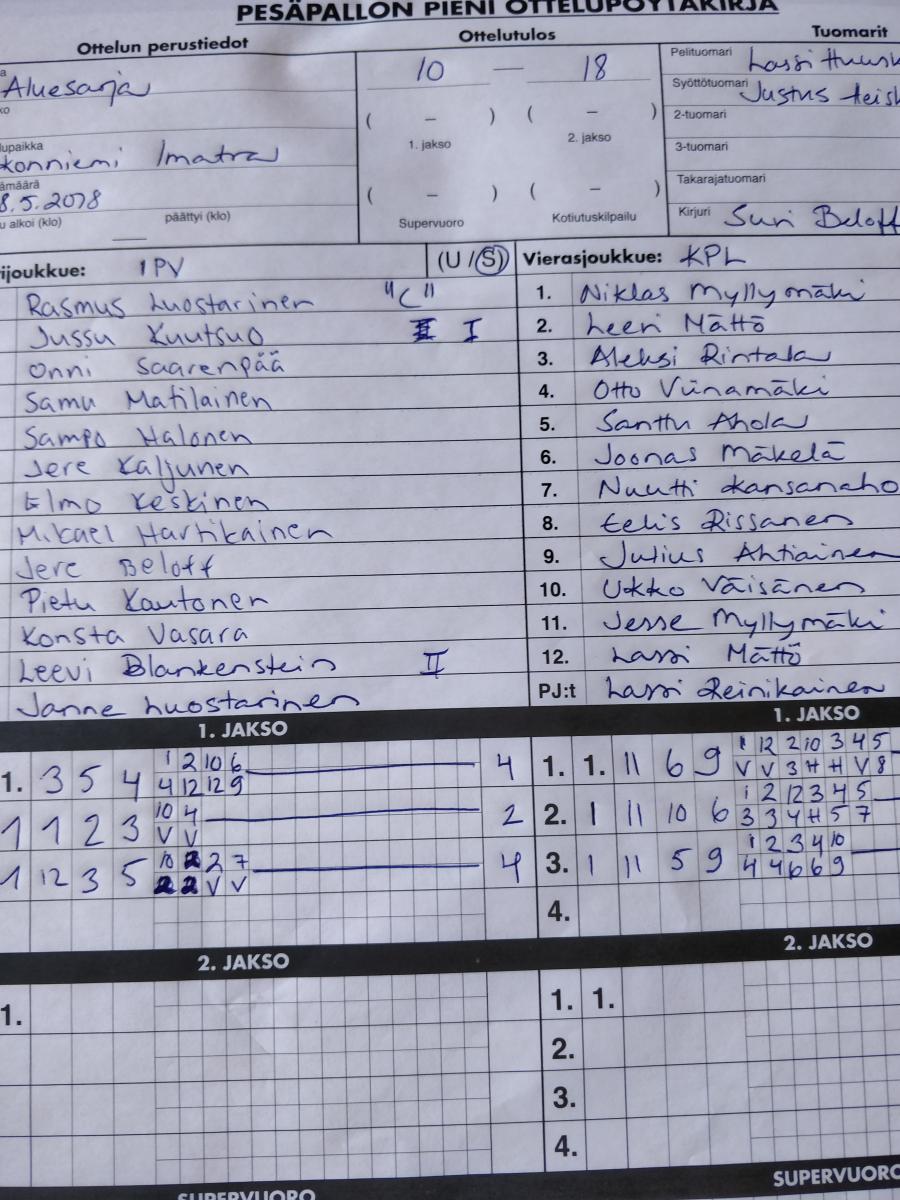 PESÄPALLON PIENI OTTELUPÖYTÄKIRJA
Ottelun perustiedot
Ottelutulos
Tuomarit
Aluesarja
10 — 18
Pelituomari Lassi Huusk
Syöttötuomari Justus Heisk
( – ) ( – )
1. jakso 2. jakso
2-tuomari
lupaikka
konniemi Imatra
3-tuomari
ämäärä
8.5.2018
( – ) ( – )
Takarajatuomari
u alkoi (klo) päättyi (klo)
Supervuoro Kotiutuskilpailu
Kirjuri Suri Beloff
ijoukkue: IPV (U / S)
Vierasjoukkue: KPL
Rasmus Luostarinen "C"
1. Niklas Myllymäki
Jussu Kuutsuo I
2. Leevi Mättö
Onni Saarenpää
3. Aleksi Rintala
Samu Matilainen
4. Otto Viinamäki
Sampo Halonen
5. Santtu Ahola
Jere Kaljunen
6. Joonas Mäkelä
Elmo Keskinen
7. Nuutti Kansanaho
Mikael Hartikainen
8. Eelis Rissanen
Jere Beloff
9. Julius Ahtiainen
Pietu Kautonen
10. Ukko Väisänen
Konsta Vasara
11. Jesse Myllymäki
Leevi Blankenstein II
12. Lassi Mättö
Janne Luostarinen
PJ:t Lassi Reinikainen
1. JAKSO
1. JAKSO
1. 3 5 4 1 2 10 6 4
4 12 12 9
1. 1. 11 6 9 1 12 2 10 3 4 5
V V 3 H H V 8
1 1 2 3 10 4 2
V V
2. 1 11 10 6 1 2 12 3 4 5
3 3 4 H 5 7
1 12 3 5 10 2 2 7 4
2 2 V V
3. 1 11 5 9 1 2 3 4 10
4 4 6 6 9
4.
2. JAKSO
2. JAKSO
1.
1. 1.
2.
3.
4.
SUPERVUORO
SUPERVUORO